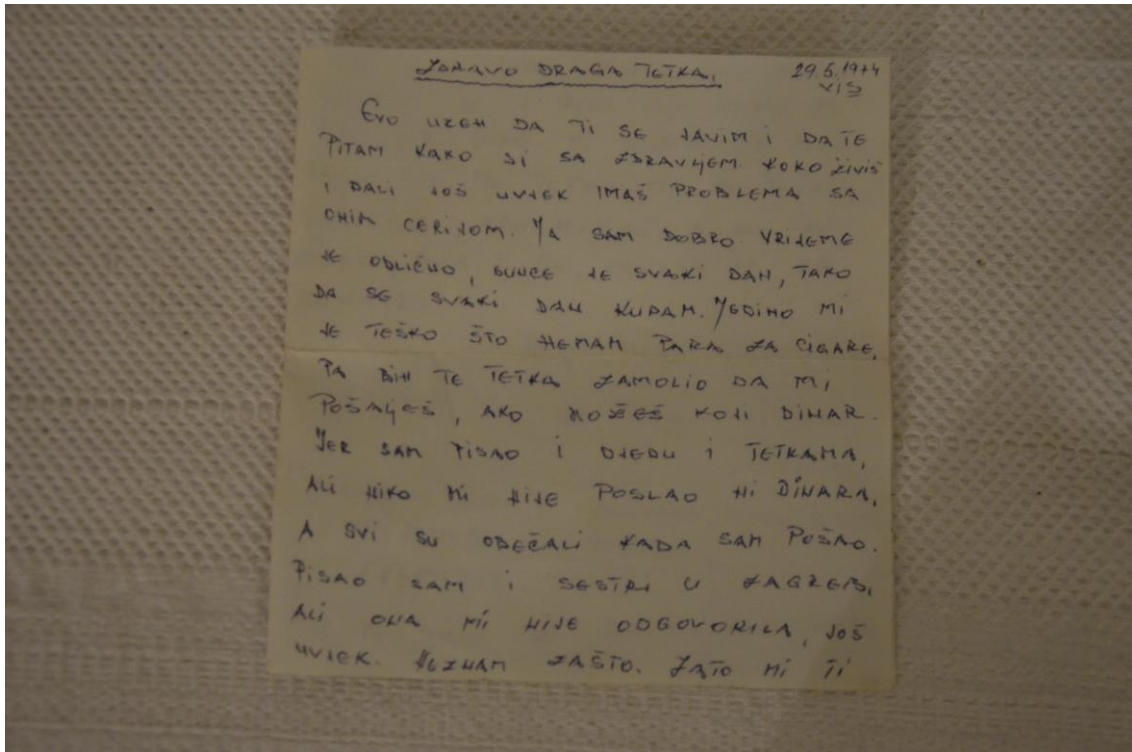 ZDRAVO DRAGA TETKA,
29.5.1974
VIS
EVO UZEH DA TI SE JAVIM I DA TE
PITAM KAKO SI SA ZDRAVLJEM. KOKO ŽIVIŠ
I DALI JOŠ UVJEK IMAŠ PROBLEMA SA
ONIM CERIJOM. JA SAM DOBRO. VRIJEME
JE ODLIČNO, SUNCE JE SVAKI DAN, TAKO
DA SE SVAKI DAN KUPAM. JEDINO MI
JE TEŠKO ŠTO NEMAM PARA ZA CIGARE,
PA BIH TE TETKA ZAMOLIO DA MI
POŠALJEŠ, AKO MOŽEŠ KOJI DINAR.
JER SAM PISAO I DJEDU I TETKAMA,
ALI NIKO MI NIJE POSLAO NI DINARA,
A SVI SU OBEČALI KADA SAM POŠAO.
PISAO SAM I SESTRI U ZAGREB,
ALI ONA MI NIJE ODGOVORILA, JOŠ
UVJEK. NEZNAM ZAŠTO. ZATO MI TI